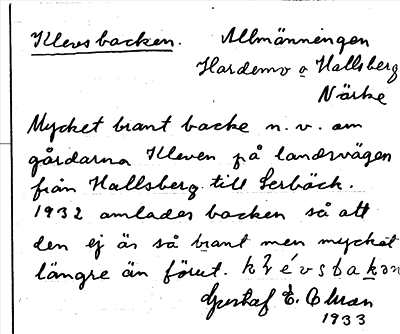 Klevsbacken. Allmänningen
Hardemo o Hallsberg
Närke
Mycket brant backe n. v. om
gårdarna Kleven på landsvägen
från Hallsberg till Lerbäck.
1932 omlades backen så att
den ej är så brant men mycket
längre än förut.
Gustaf E.
1933